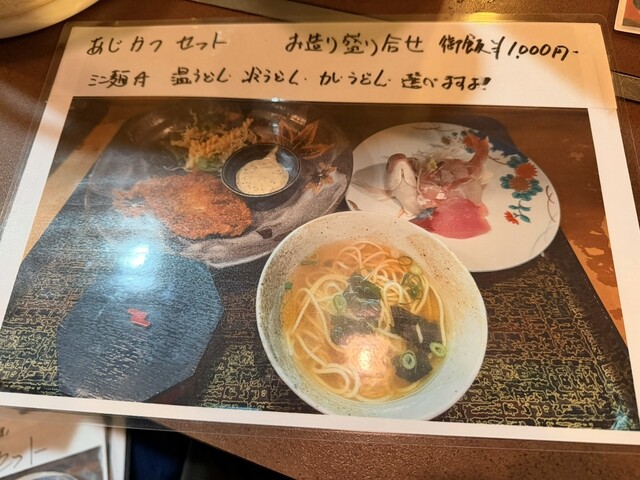 あじかつセット お造り盛り合せ 御飯 ¥1,000円-
ミニ麺丼 温うどん・冷うどん・カレーうどん・選べますよ!
セット